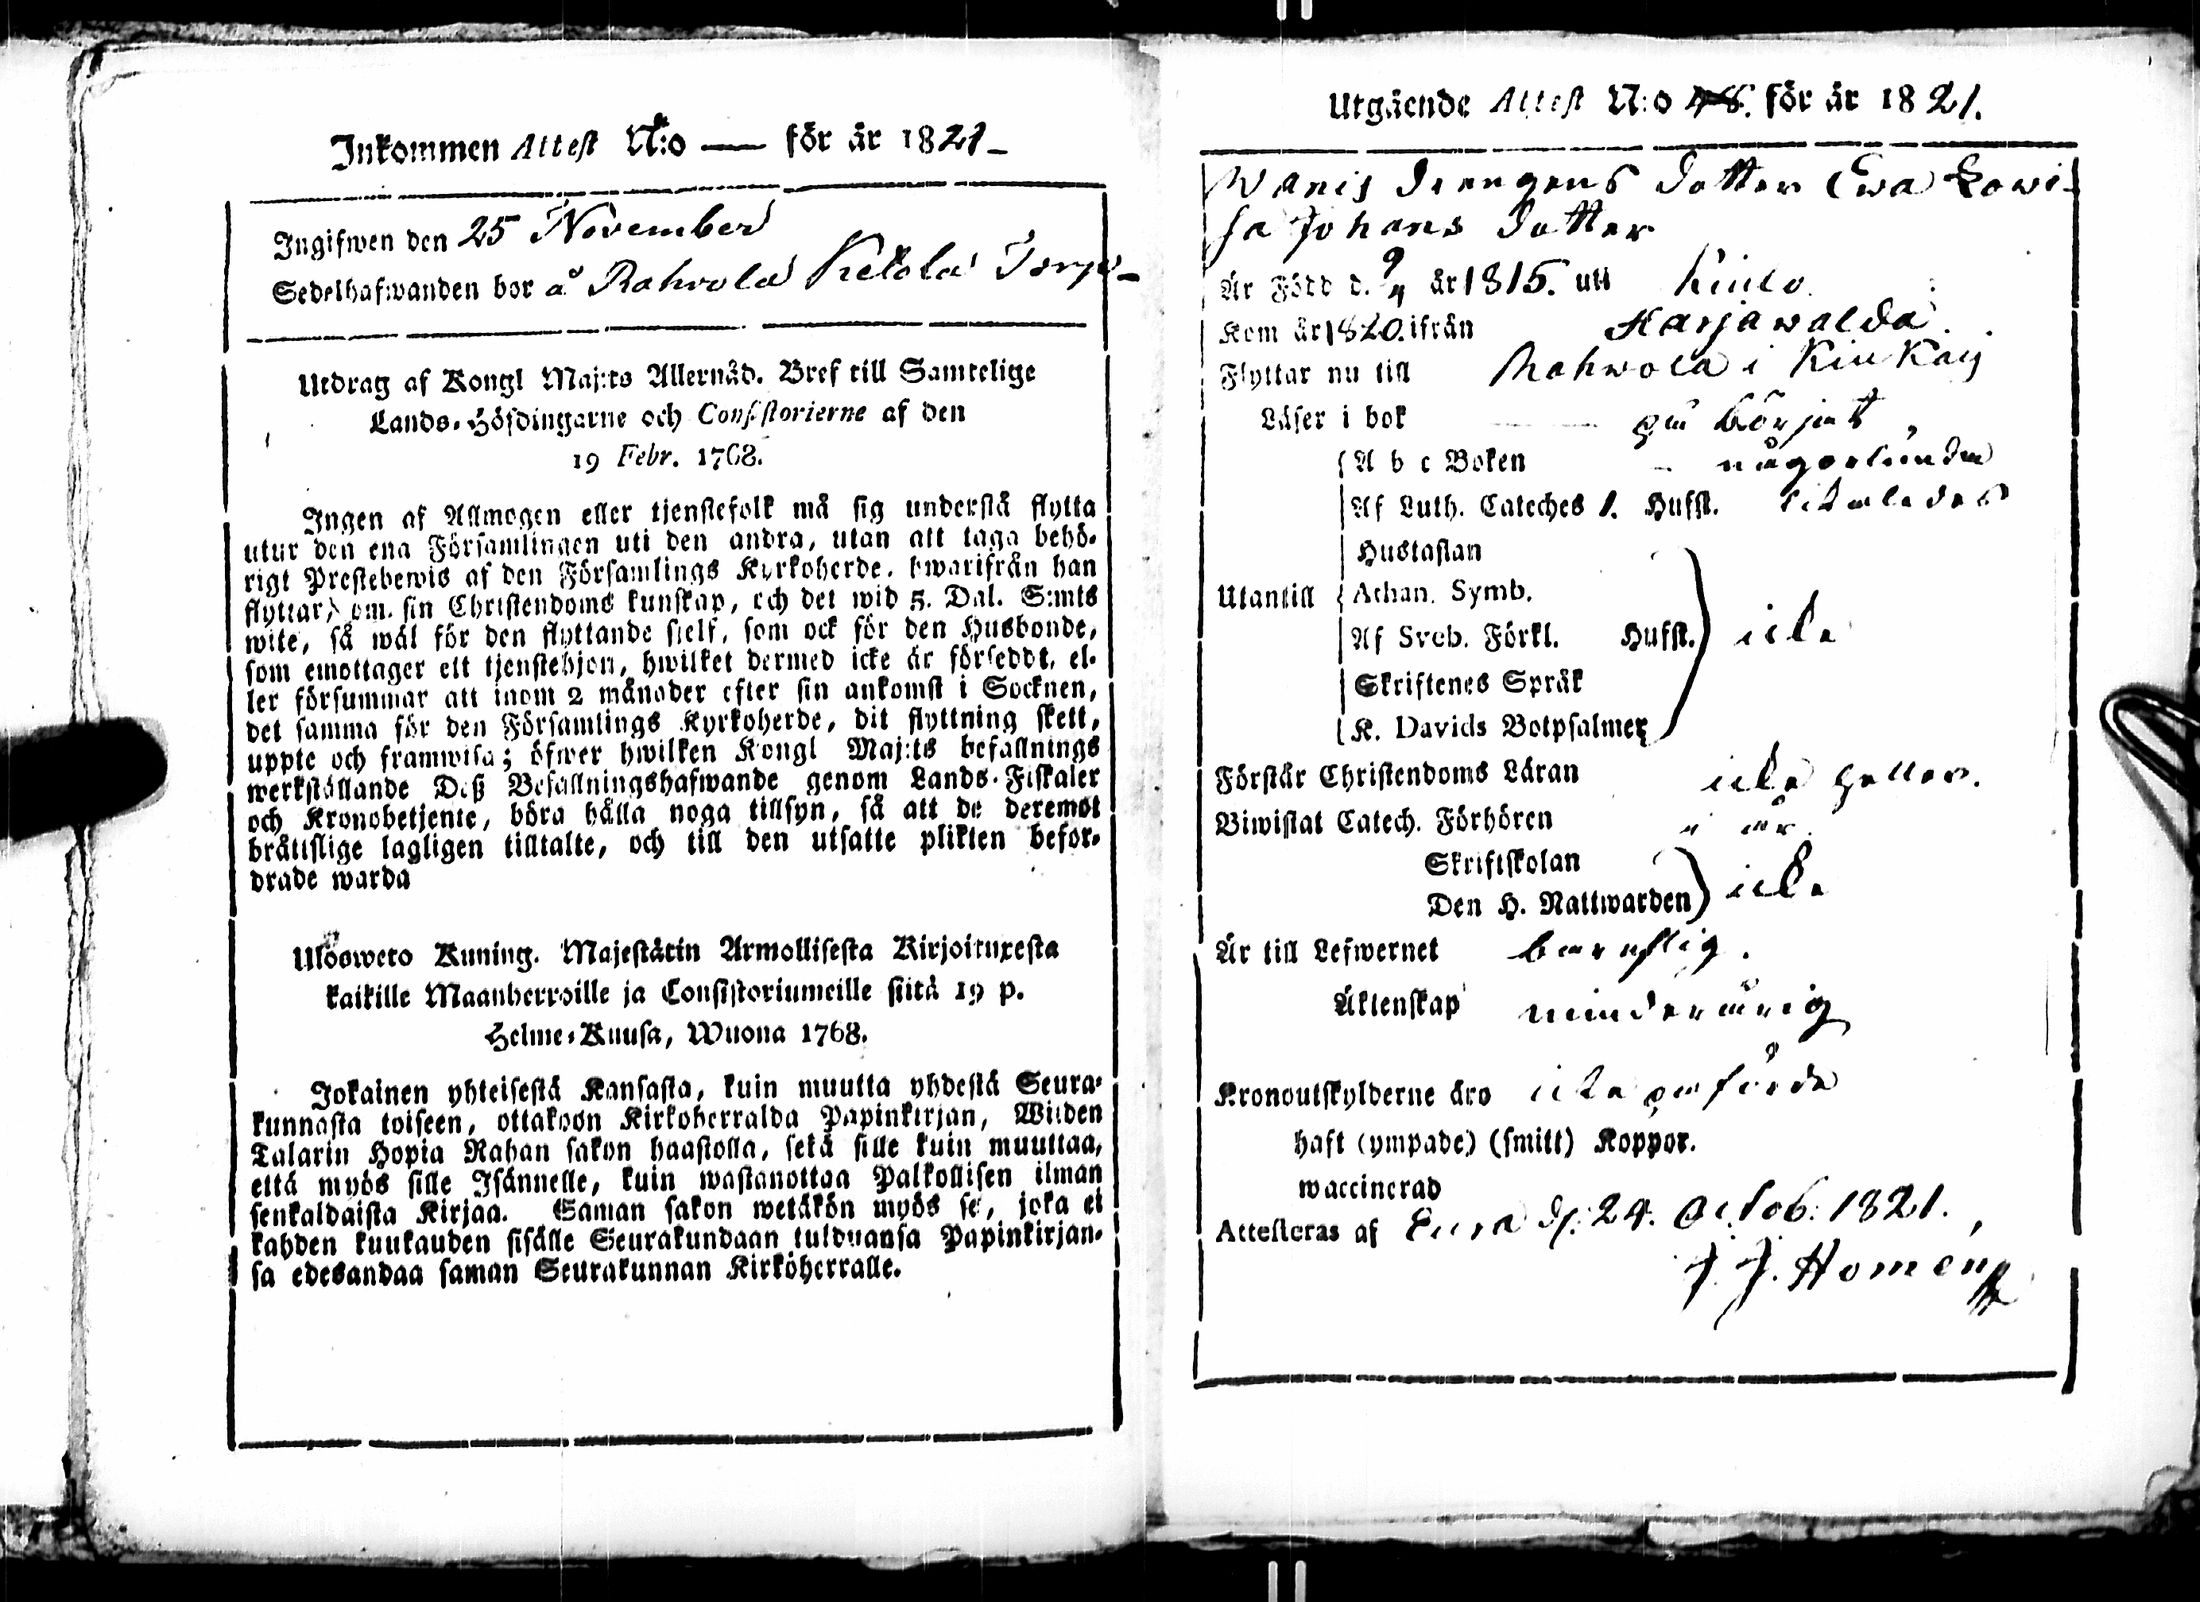 Inkommen Attest N:o — för år 1821
Ingifwen den 25 November
Sedelhafwanden bor å Rahvola Ketola Torp
Utdrag af Kongl Maj:ts Allernåd. Bref till Samtelige
Lands-Höfdingarne och Consistorierne af den
19 Febr. 1768.
Ingen af Allmogen eller tjenstefolk må sig understå flytta
utur den ena Församlingen uti den andra, utan att taga behö-
rigt Prestebewis af den Församlings Kyrkoherde, hwarifrån han
flyttar, om sin Christendoms kunskap, och det wid 5. Dal. S:mts
wite, så wäl för den flyttande sjelf, som ock för den Husbonde,
som emottager ett tjenstehjon, hwilket dermed icke är försedt, el-
ler försummar att inom 2 månader efter sin ankomst i Socknen,
det samma för den Församlings Kyrkoherde, dit flyttning skett,
uppte och framwisa; öfwer hwilken Kongl Maj:ts befallnings
werkställande Deß Befallningshafwande genom Lands-Fiskaler
och Kronobetjente, böra hålla noga tillsyn, så att de deremot
bråttslige lagligen tilltalte, och till den utsatte plikten befor-
drade warda
Ulosweto Kuning. Majestätin Armollisesta Kirjoituxesta
kaikille Maanherroille ja Consistoriumeille siitä 19 p.
Helme-Kuusa, Wuona 1768.
Jokainen yhteisestä Kansasta, kuin muutta yhdestä Seura-
kunnasta toiseen, ottakoon Kirkoherralda Papinkirjan, Wiiden
Talarin Hopia Rahan sakon haastolla, sekä sille kuin muuttaa,
että myös sille Isännelle, kuin wastanottaa Palkollisen ilman
senkaldaista Kirjaa. Saman sakon wetäkön myös se, joka ei
kahden kuukauden sisälle Seurakundaan tulduansa Papinkirjan-
sa edesandaa saman Seurakunnan Kirköherralle.
Utgående Attest N:o 48. för år 1821.
Wanis drengens dotter Ewa Lowi-
sa Johans dotter
Är Född d. 9/4 år 1815. uti Kiulo
Kom år 1820. ifrån Harjawalda.
Flyttar nu till Rahwola i Kiukais
Läser i bok på börjat
A b c Boken någorlunda
Af Luth. Cateches 1. Hufst. likaledes
Hustaflan
Utantill Athan. Symb.
Af Sveb. Förkl. Hufst. icke
Skriftenes Språk
K. Davids Botpsalmer
Förstår Christendoms Läran icke heller.
Biwistat Catech. Förhören i år.
Skriftskolan
Den H. Nattwarden icke
Är till Lefwernet barnslig.
Äktenskap minderårig
Kronoutskylderne äro icke påförda
haft (ympade) (smitt) Koppor.
waccinerad
Attesteras af Eura d. 24. Octob. 1821.
J. J. Homén